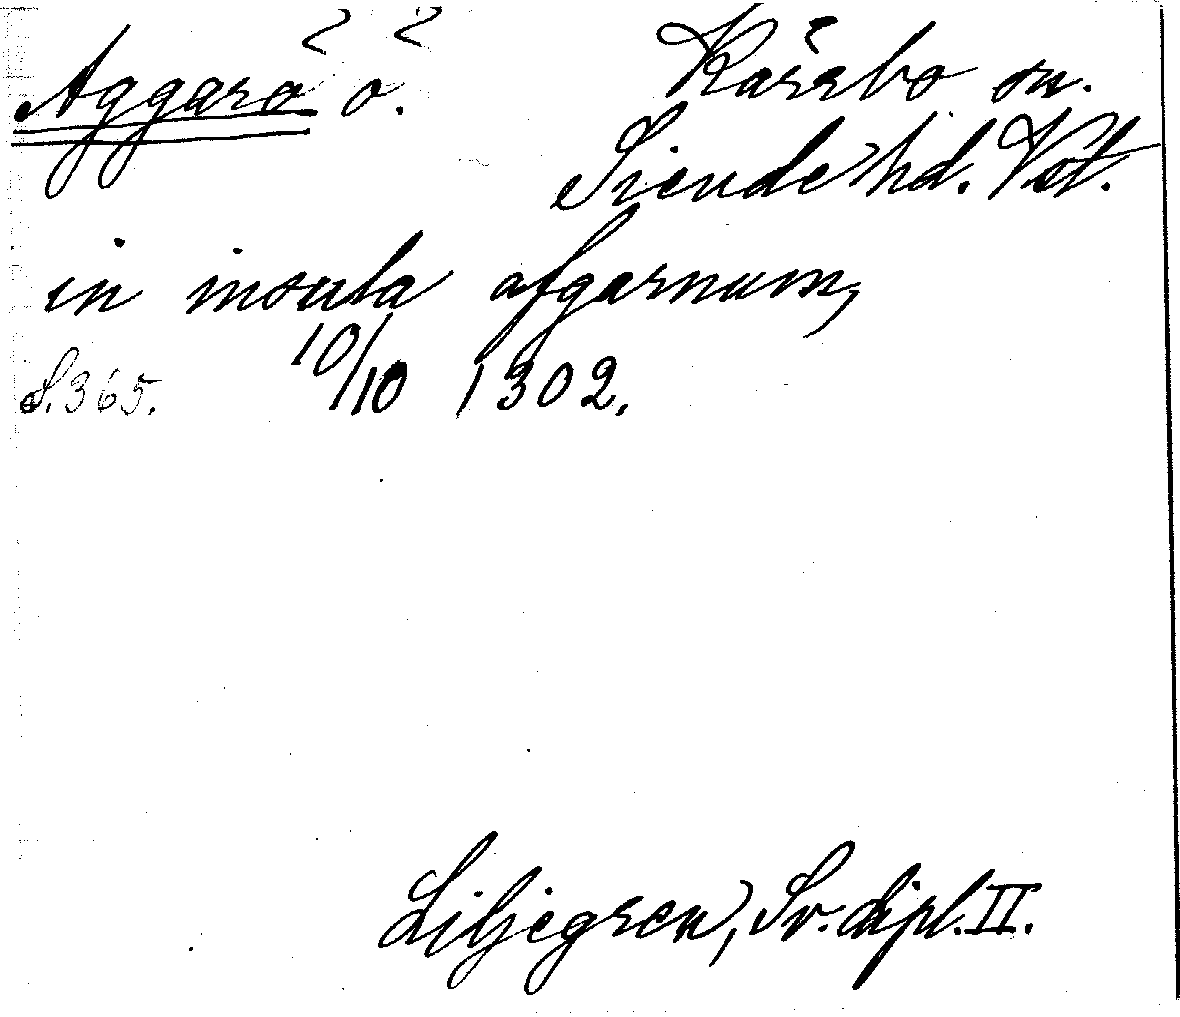 Aggarö ö. Kärrbo sn.
Siende hd. Vst.
in insula afgarnum,
S. 365. 10/10 1302.
Liljegren, Sv. dipl. II.